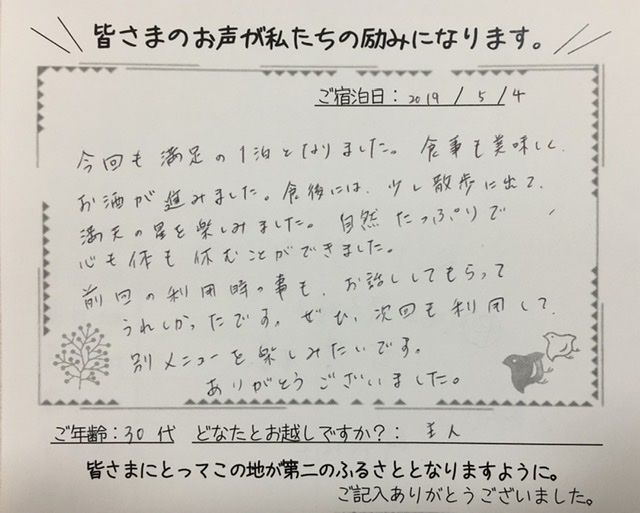 皆さまのお声が私たちの励みになります。
ご宿泊日：2019/5/4
今回も満足の1泊となりました。食事も美味しく、
お酒が進みました。食後には、少し散歩に出て、
満天の星を楽しみました。自然たっぷりで
心も体も休むことができました。
前回の利用時の事も、お話ししてもらって
うれしかったです。ぜひ、次回も利用して、
別メニューを楽しみたいです。
ありがとうございました。
ご年齢：30代 どなたとお越しですか？：主人
皆さまにとってこの地が第二のふるさととなりますように。
ご記入ありがとうございました。